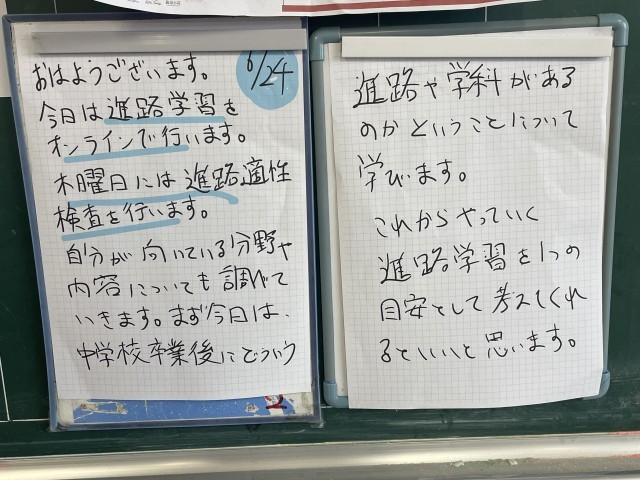 6/24
おはようございます。
今日は進路学習を
オンラインで行います。
木曜日には進路適性
検査を行います。
自分が向いている分野や
内容についても調べて
いきます。まず今日は、
中学校卒業後にどういう
進路や学科がある
のかということについて
学びます。
これからやっていく
進路学習を1つの
目安として考えてくれ
るといいと思います。